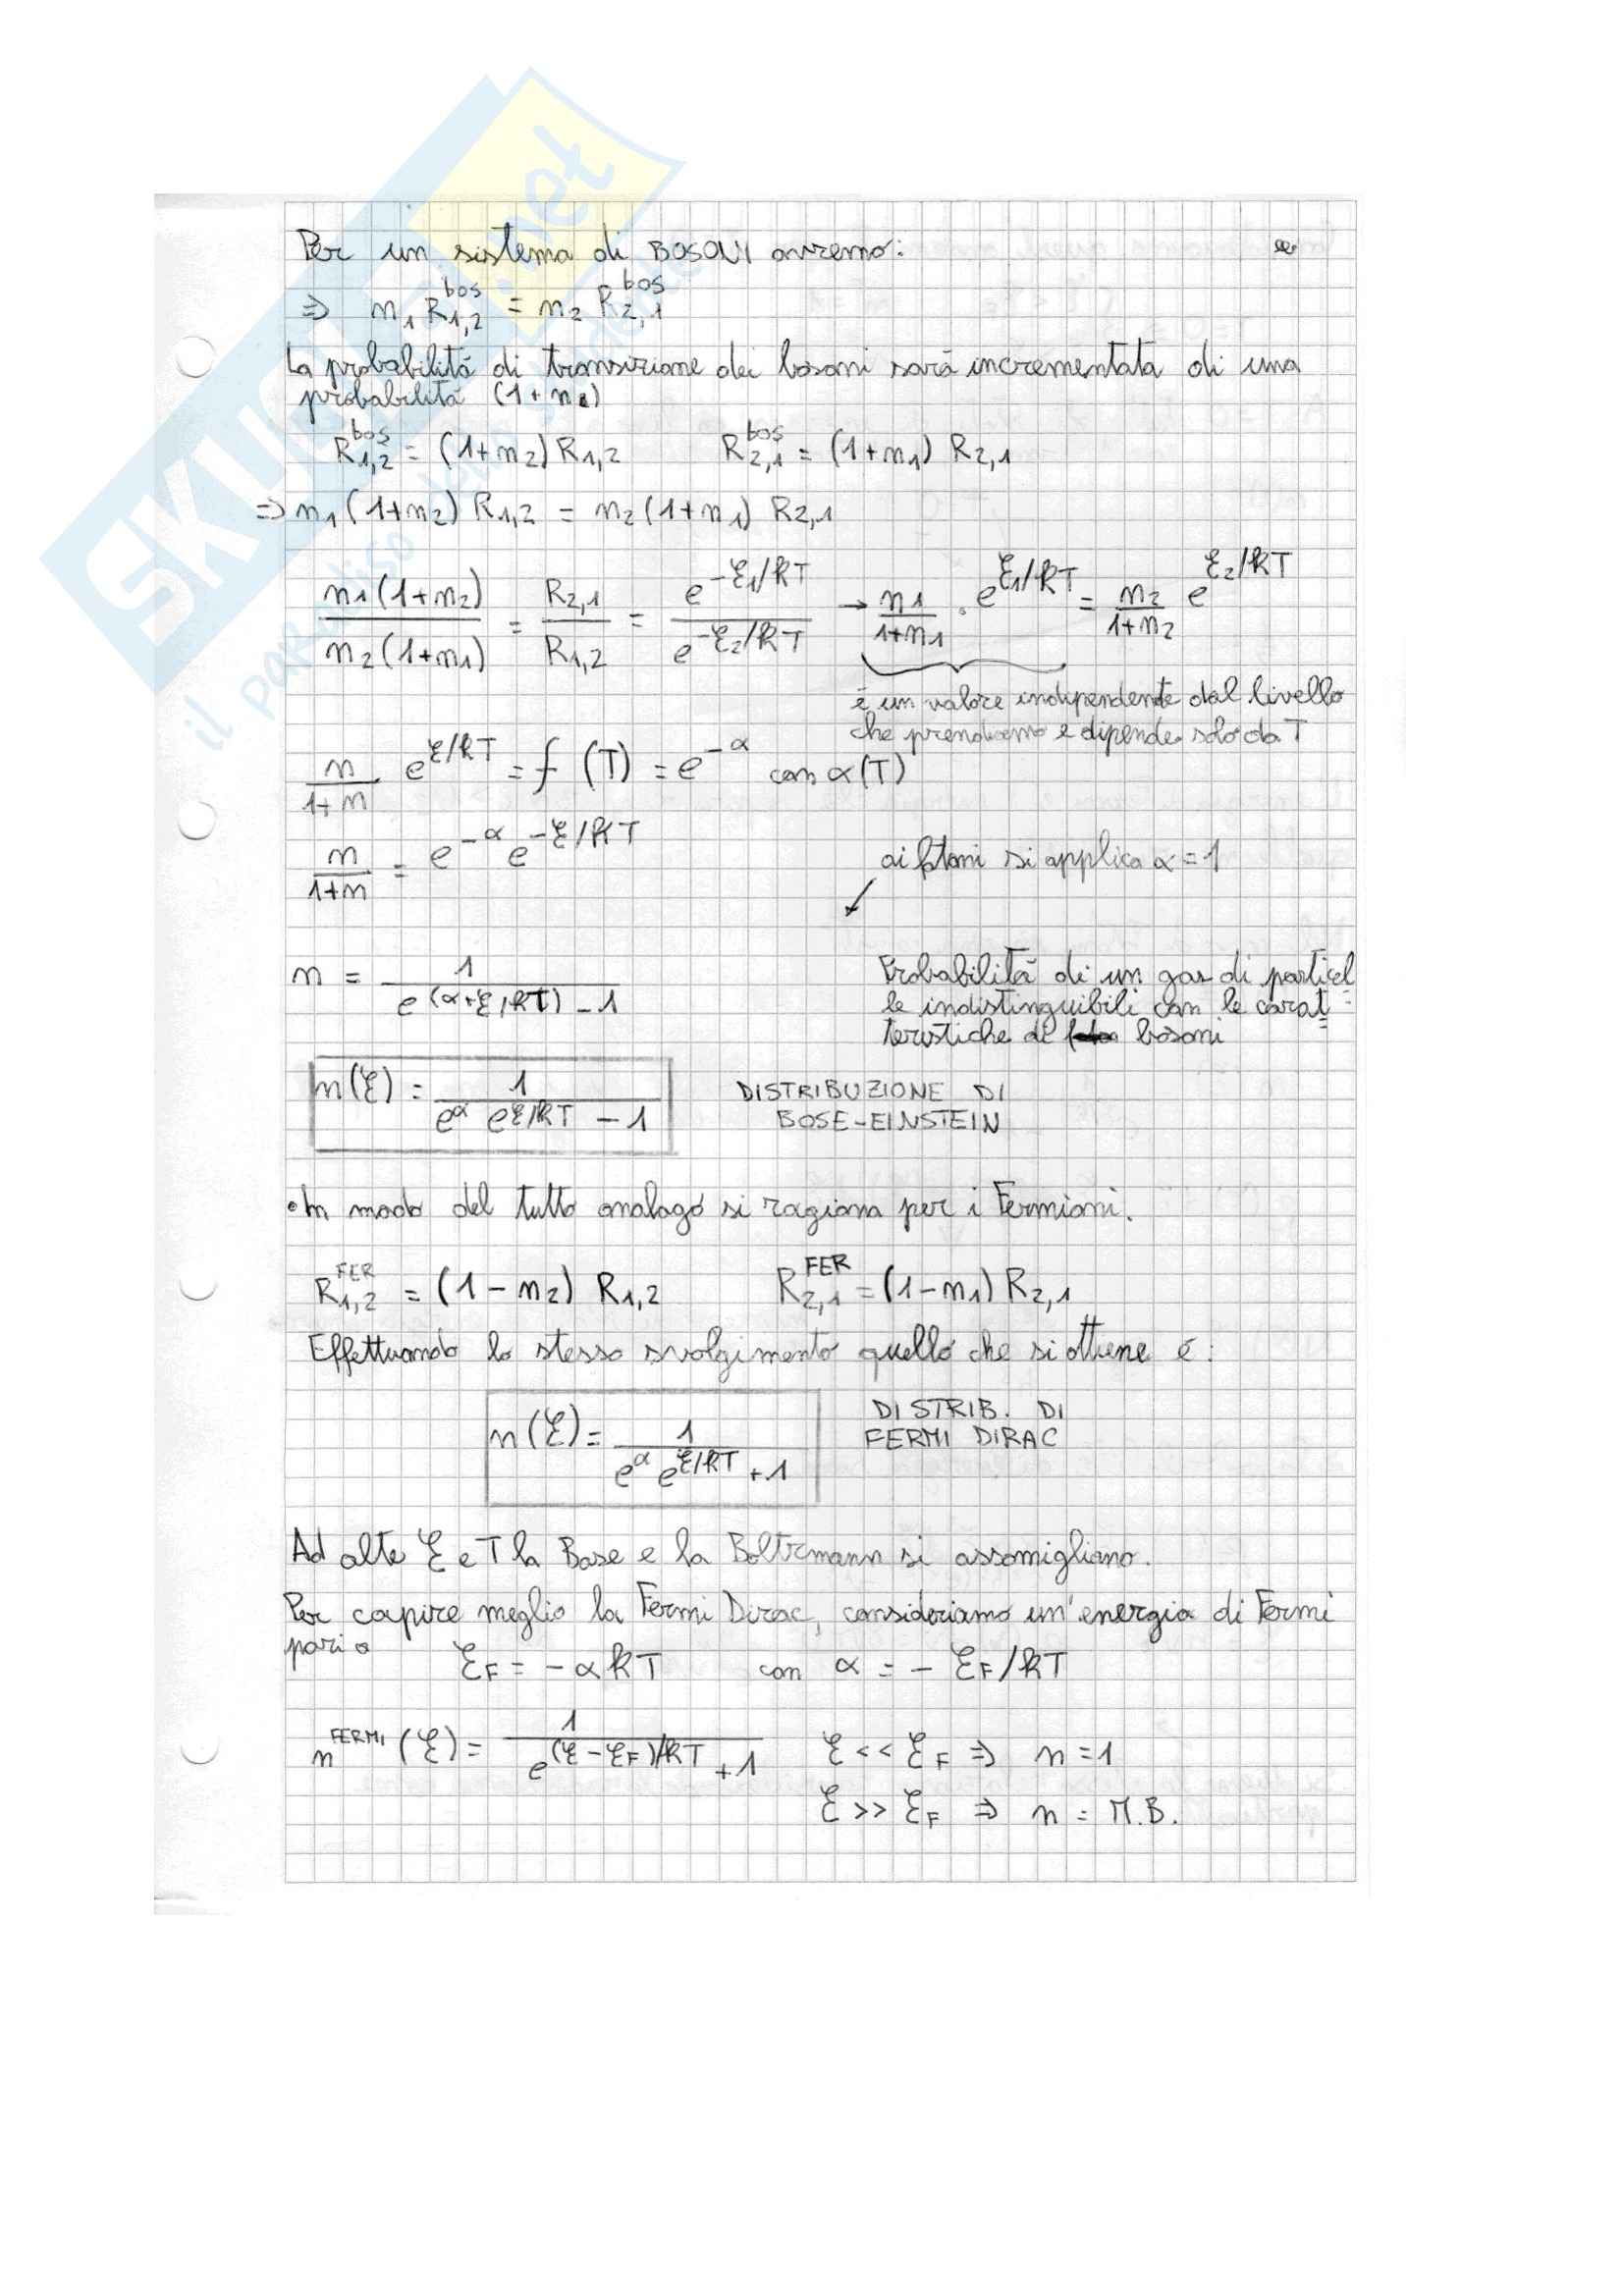 SKUOLA.net
il paradiso dello studente
Per un sistema di BOSONI avremo:
⇒ n₁ R₁,₂^bos = n₂ R₂,₁^bos
La probabilità di transizione dei bosoni sarà incrementata di una
probabilità (1+n₂)
R₁,₂^bos = (1+n₂) R₁,₂ R₂,₁^bos = (1+n₁) R₂,₁
⇒ n₁(1+n₂) R₁,₂ = n₂(1+n₁) R₂,₁
n₁(1+n₂) / n₂(1+n₁) = R₂,₁ / R₁,₂ = e^(-ℰ₁/kT) / e^(-ℰ₂/kT) → n₁/(1+n₁) · e^(ℰ₁/kT) = n₂/(1+n₂) e^(ℰ₂/kT)
è un valore indipendente dal livello
che prendiamo e dipende solo da T
n/(1+n) · e^(ℰ/kT) = f(T) = e^(-α) con α(T)
n/(1+n) = e^(-α) e^(-ℰ/kT)
ai fotoni si applica α=1
n = 1 / (e^(α+ℰ/kT) - 1)
Probabilità di un gas di particel
le indistinguibili con le carat
teristiche di bosoni
n(ℰ) = 1 / (e^α e^(ℰ/kT) - 1) DISTRIBUZIONE DI
BOSE-EINSTEIN
•In modo del tutto analogo si ragiona per i Fermioni.
R₁,₂^FER = (1-n₂) R₁,₂ R₂,₁^FER = (1-n₁) R₂,₁
Effettuando lo stesso svolgimento quello che si ottiene è:
n(ℰ) = 1 / (e^α e^(ℰ/kT) + 1) DISTRIB. DI
FERMI DIRAC
Ad alte ℰ e T la Bose e la Boltzmann si assomigliano.
Per capire meglio la Fermi Dirac, consideriamo un'energia di Fermi
pari a ℰF = -αkT con α = -ℰF/kT
n^FERMI (ℰ) = 1 / (e^((ℰ-ℰF)/kT) + 1) ℰ << ℰF ⇒ n = 1
ℰ >> ℰF ⇒ n = M.B.